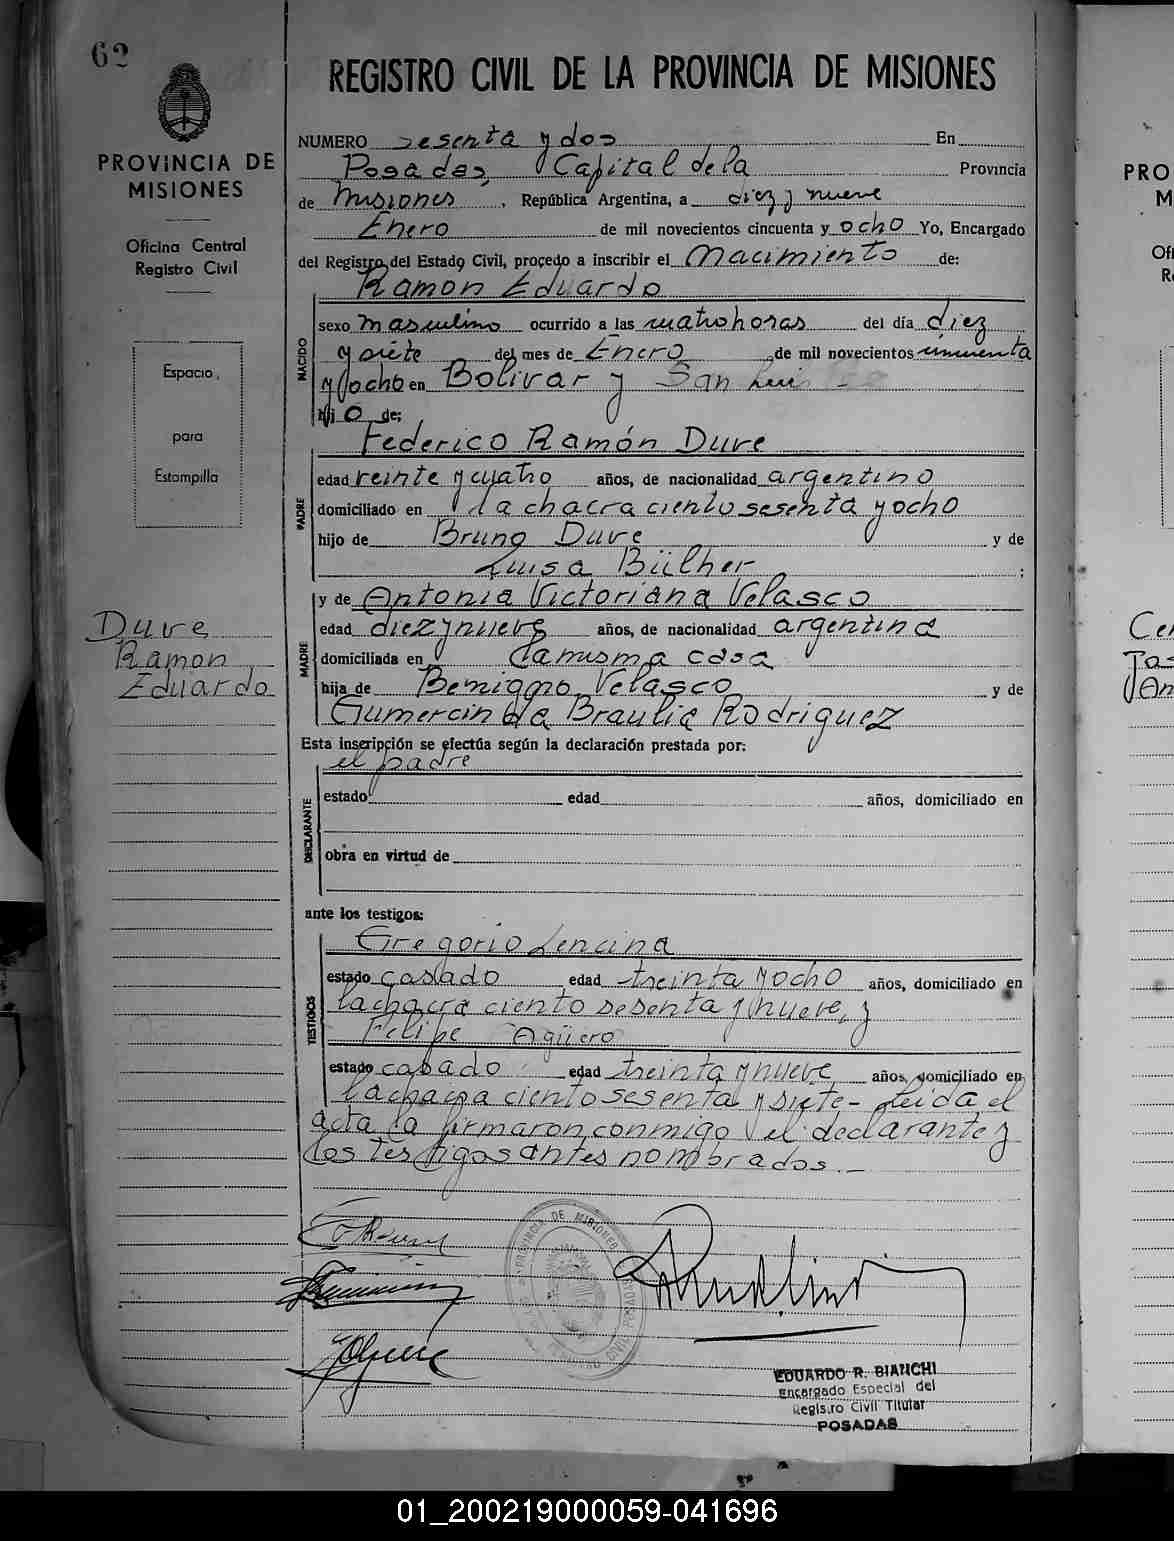 62
PROVINCIA DE
MISIONES
Oficina Central
Registro Civil
Espacio
para
Estampilla
Dure
Ramon
Eduardo
REGISTRO CIVIL DE LA PROVINCIA DE MISIONES
NUMERO sesenta y dos En
Posadas, Capital de la Provincia
de Misiones, República Argentina, a diez y nueve
Enero de mil novecientos cincuenta y ocho Yo, Encargado
del Registro del Estado Civil, procedo a inscribir el Nacimiento de:
Ramon Eduardo
NACIDO
sexo masculino ocurrido a las cuatro horas del día diez
y siete del mes de Enero de mil novecientos cincuenta
y ocho en Bolivar y San Luis
hijo de:
Federico Ramón Dure
PADRE
edad veinte y cuatro años, de nacionalidad argentino
domiciliado en la chacra ciento sesenta y ocho
hijo de Bruno Dure y de
Luisa Bülher ;
y de Antonia Victoriana Velasco
MADRE
edad diez y nueve años, de nacionalidad argentina
domiciliada en la misma casa
hija de Benigno Velasco y de
Gumercinda Braulia Rodriguez
Esta inscripción se efectúa según la declaración prestada por:
el padre
DECLARANTE
estado edad años, domiciliado en
obra en virtud de
ante los testigos:
Gregorio Lencina
TESTIGOS
estado casado edad treinta y ocho años, domiciliado en
la chacra ciento sesenta y nueve, y
Felipe Agüero
estado casado edad treinta y nueve años, domiciliado en
la chacra ciento sesenta y siete - Leida el
acta la firmaron conmigo el declarante y
los testigos antes nombrados.-
PROVINCIA DE MISIONES
EDUARDO R. BIANCHI
Encargado Especial del
Registro Civil Titular
POSADAS
PRO
M
Ofi
Re
01_200219000059-041696